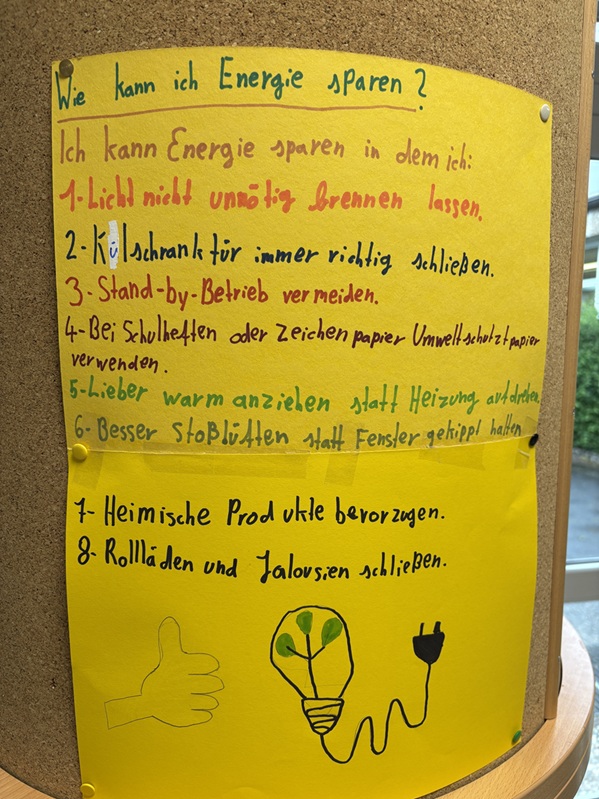 Wie kann ich Energie sparen?
Ich kann Energie sparen in dem ich:
1-Licht nicht unnötig brennen lassen.
2-Külschranktür immer richtig schließen.
3-Stand-by-Betrieb vermeiden.
4-Bei Schulheften oder Zeichenpapier Umweltschutztpapier
verwenden.
5-Lieber warm anziehen statt Heizung aufdrehen.
6-Besser Stoßlüften statt Fenster gekippt halten
7-Heimische Produkte bevorzugen.
8-Rollläden und Jalousien schließen.